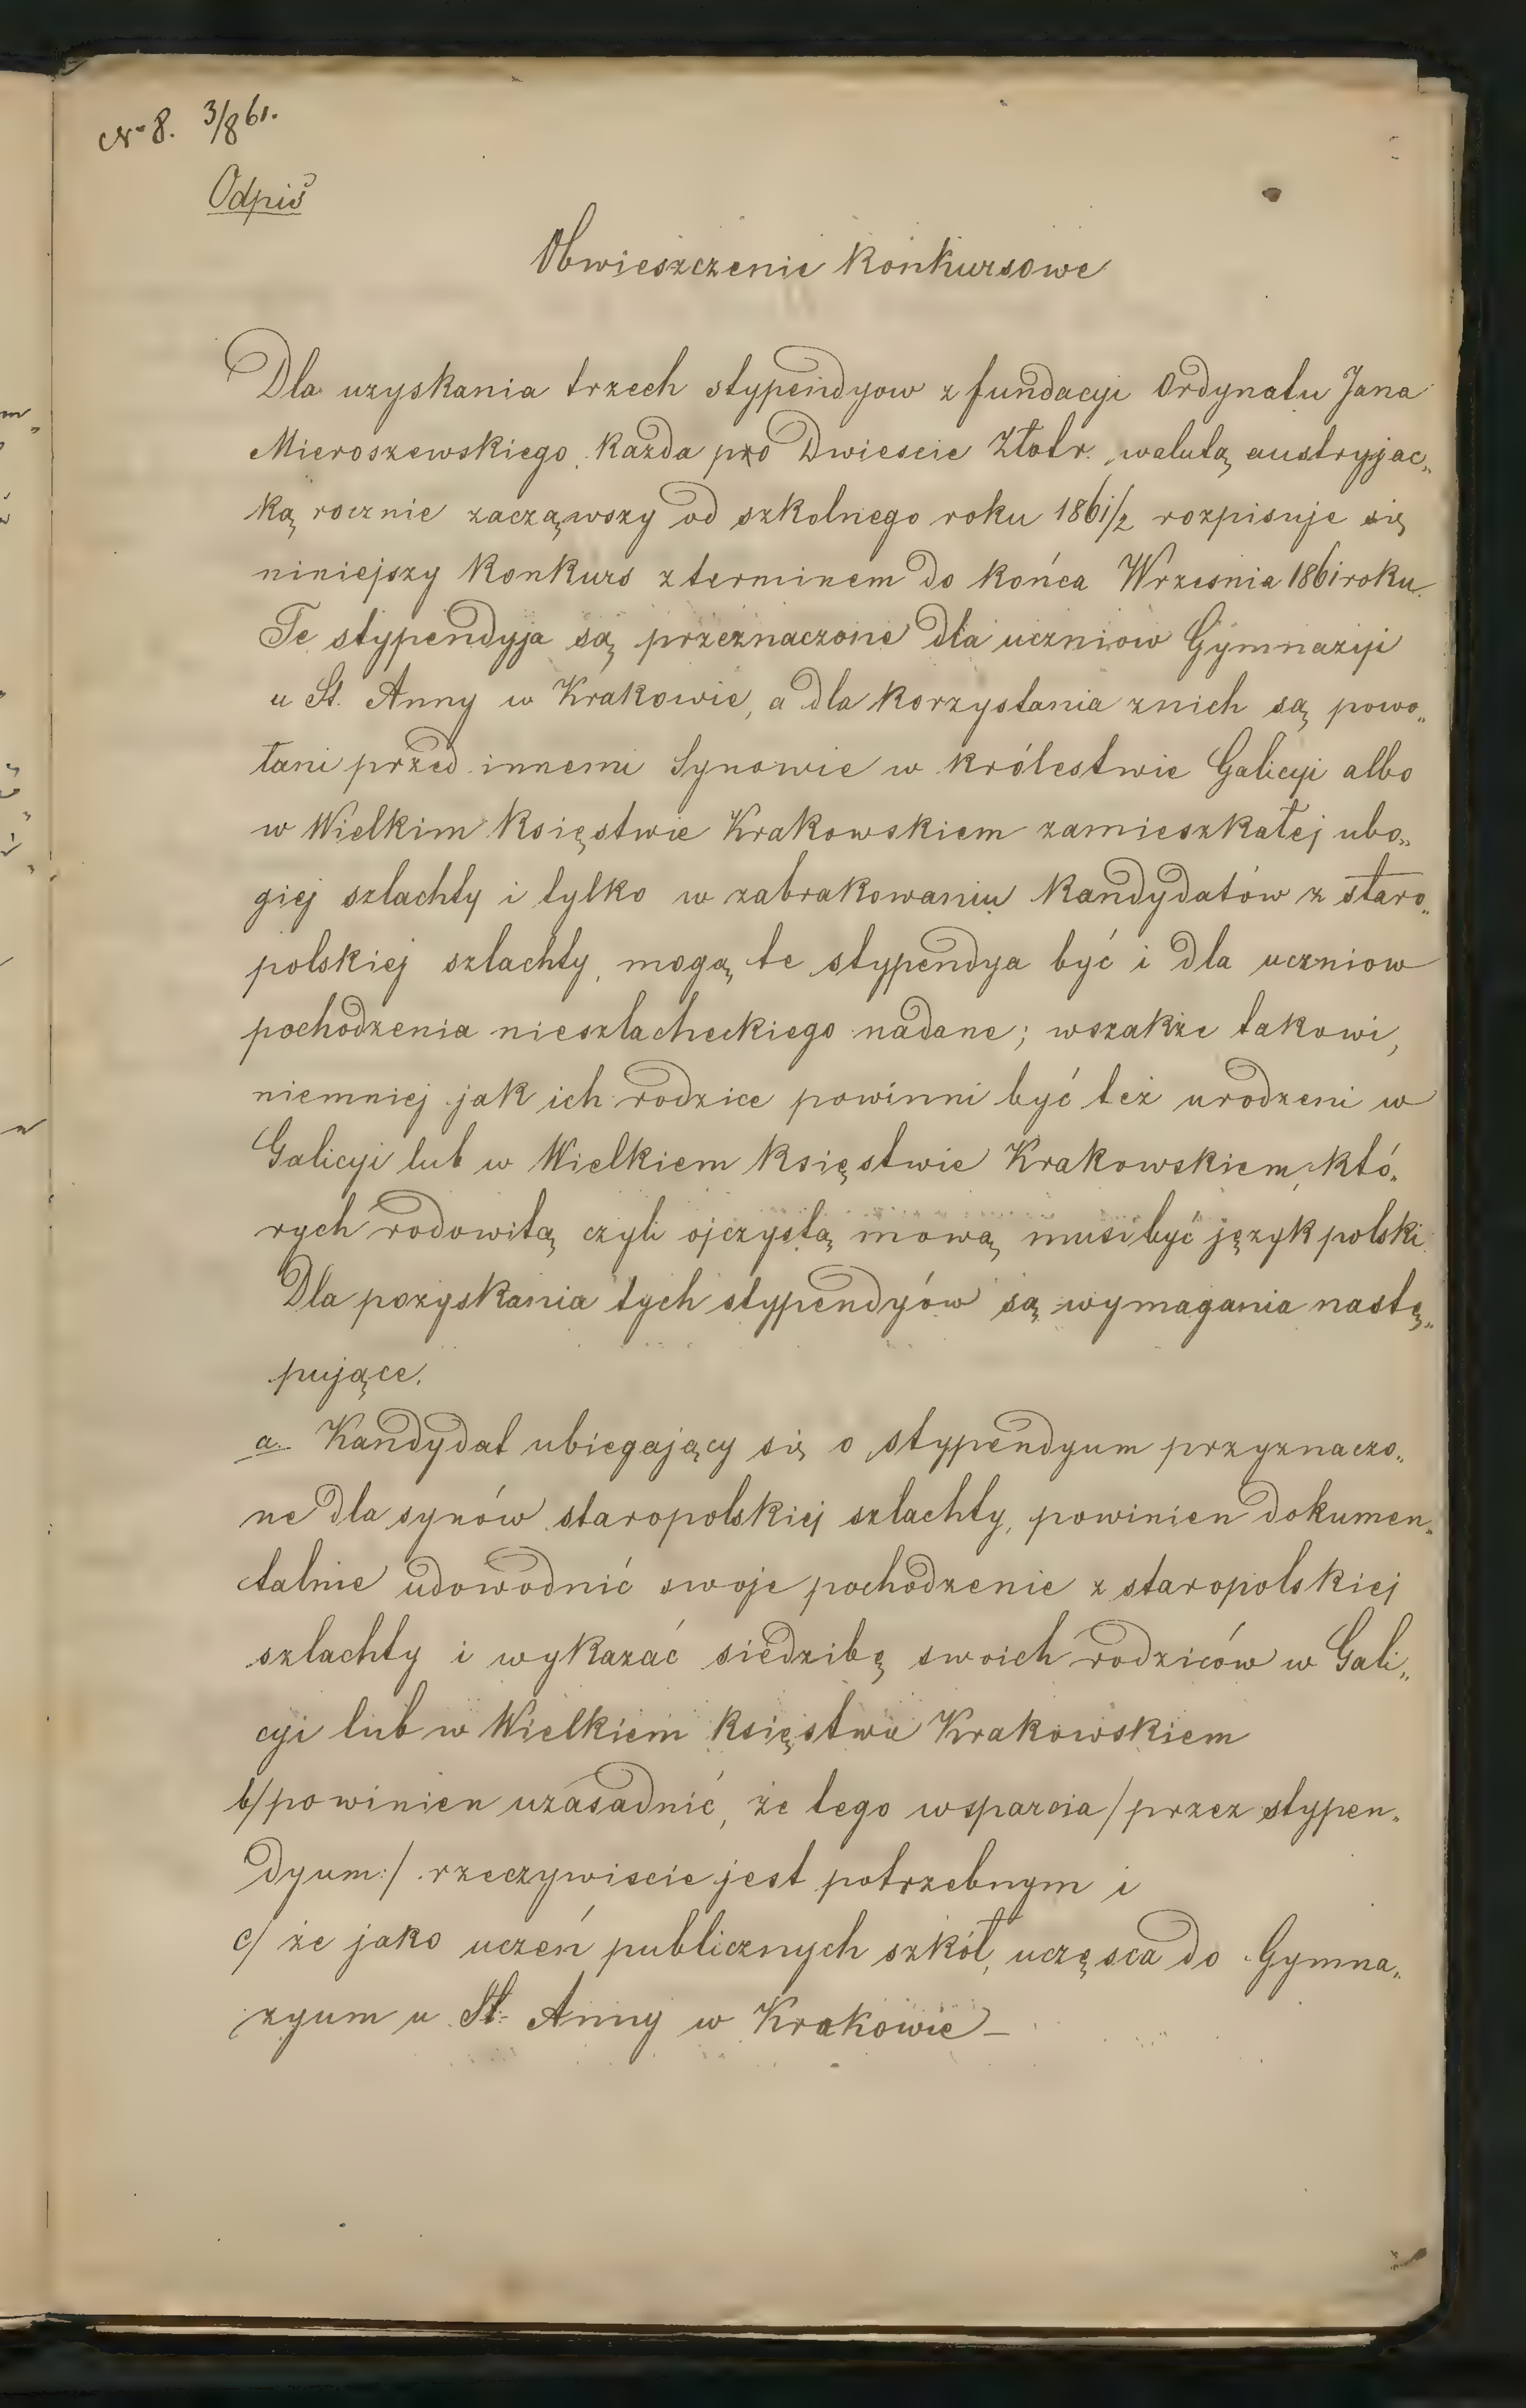 Nº 8. 3/8 61.
Odpis
Obwieszczenie Konkursowe
Dla uzyskania trzech stypendyow z fundacyi Ordynatu Jana
Mieroszewskiego, Kazda pro Dwiescie Złotr. walutą austryjac„
ką rocznie zacząwszy od szkolnego roku 1861/2 rozpisuje się
niniejszy Konkurs z terminem do końca Wrzesnia 1861 roku.
Te stypendyja są przeznaczone dla uczniow Gymnazyi
u St. Anny w Krakowie, a dla Korzystania z nich są powo„
łani przed innemi Synowie w królestwie Galicyi albo
w Wielkim Księstwie Krakowskiem zamieszkałej ubo„
giej szlachty i tylko w zabrakowaniu Kandydatów z staro„
polskiej szlachty, mogą te stypendya być i dla uczniow
pochodzenia nieszlacheckiego nadane; wszakże takowi,
niemniej jak ich rodzice powinni być też urodzeni w
Galicyi lub w Wielkiem Księstwie Krakowskiem, któ„
rych rodowitą czyli ojczystą mową musi być język polski.
Dla pozyskania tych stypendyów są wymagania nastę„
pujące.
a. Kandydat ubiegający się o stypendyum przyznaczo„
ne dla synów staropolskiej szlachty, powinien dokumen„
talnie udowodnić swoje pochodzenie z staropolskiej
szlachty i wykazać siedzibę swoich rodziców w Gali„
cyi lub w Wielkiem Księstwie Krakowskiem
b/ powinien uzasadnić, że tego wsparcia /przez stypen„
dyum:/ rzeczywiscie jest potrzebnym i
c/ że jako uczeń publicznych szkół, uczęsca do Gymna„
zyum u St. Anny w Krakowie –